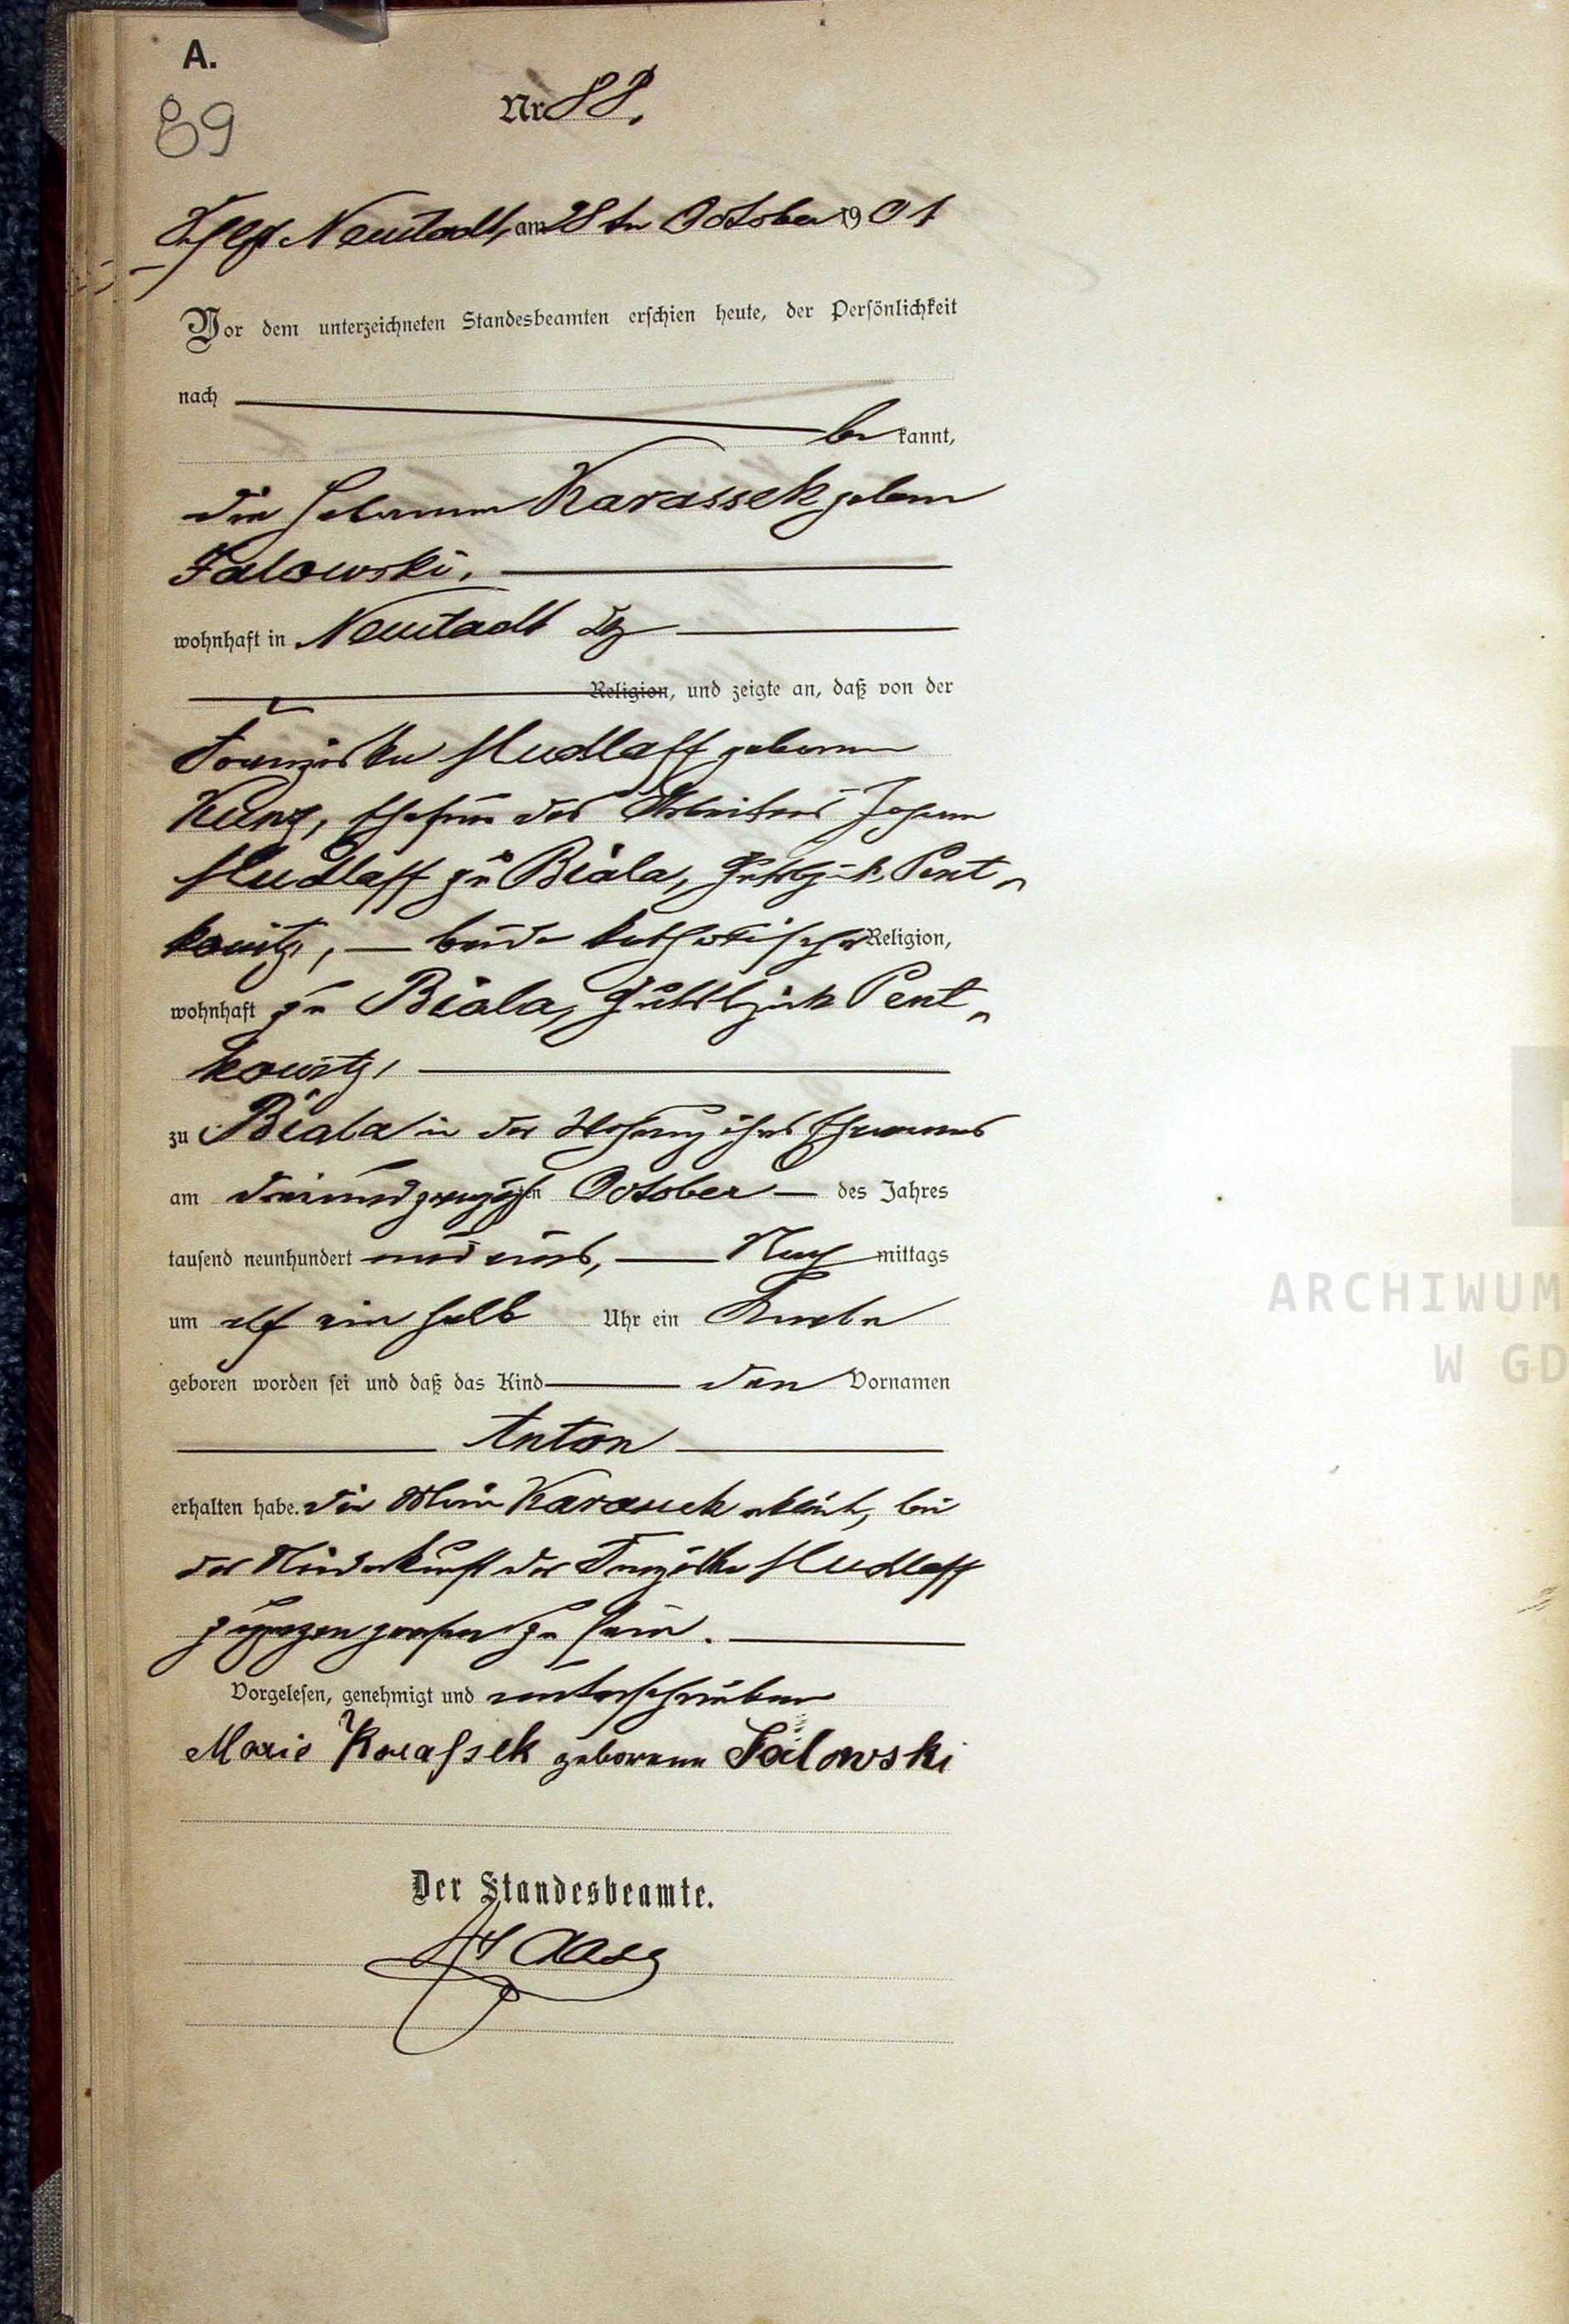 A.
89
Nr 88.
Neustadt, am 28ten October 1901
Vor dem unterzeichneten Standesbeamten erschien heute, der Persönlichkeit
nach
be kannt,
die Hebamme Karassek geborne
Falowski.
wohnhaft in Neustadt
Religion, und zeigte an, daß von der
Franziska Mudlaff geborenen
Kunz, Ehefrau des Arbeiters Johann
Mudlaff zu Biala, Gutsbezirk Pent-
kowitz, — beide katholischer Religion,
wohnhaft zu Biala, Gutsbezirk Pent-
kowitz,
zu Biala in der Wohnung ihres Ehemannes
am dreiundzwanzigsten October — des Jahres
tausend neunhundert und eins, — Nach mittags
um elf ein halb Uhr ein Knabe
geboren worden sei und daß das Kind — den Vornamen
Anton
erhalten habe. Die Karassek erklärte, bei
der Niederkunft der Franziska Mudlaff
zugegen gewesen zu sein.
Vorgelesen, genehmigt und unterschrieben
Marie Karassek geborene Falowski
Der Standesbeamte.
ARCHIWUM
W GD